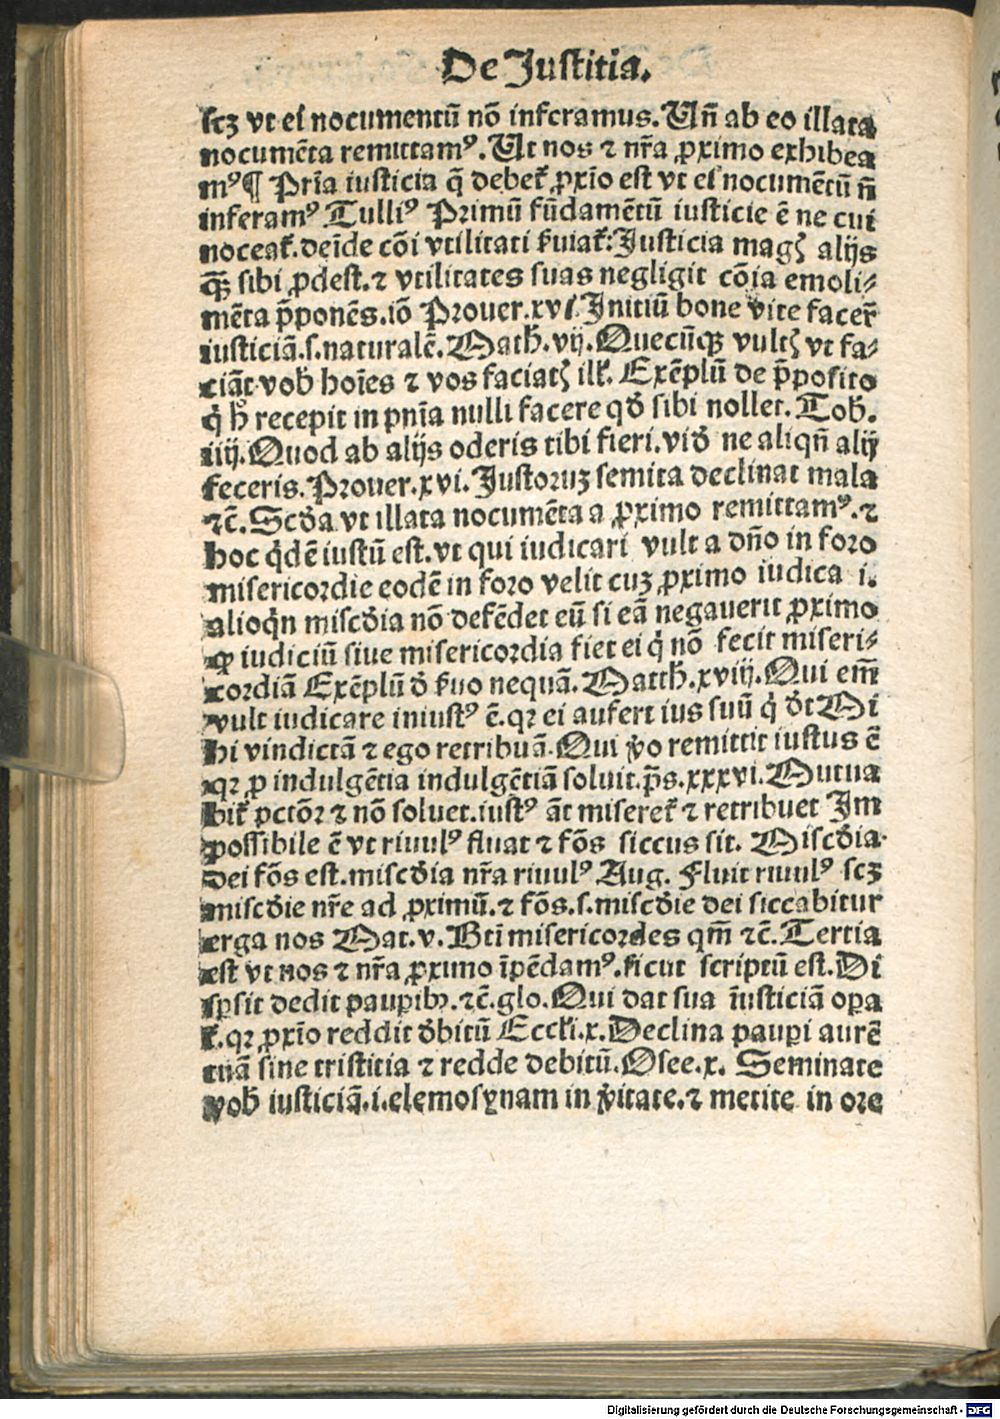 De Justitia.
scz vt ei nocumentū nō inferamus. Uñ ab eo illata
nocumēta remittamꝰ. Ut nos ⁊ nr̃a ꝓximo exhibea
mꝰ ¶ Pria̅ iusticia q̄ debet̃ ꝓxīo est vt ei nocumētū ñ
inferamꝰ Tulliꝰ Primū fūdamētū iusticie ē ne cui
noceat̃. deīde cōi vtilitati ſuiat̃: Justicia magꝭ alijs
ꝙ̃ sibi ꝓdest. ⁊ vtilitates suas negligit cōia emoli⸗
mēta p̄ponēs. iō Prouer. xvi Initiū bone vite facer̃
iusticiā. s. naturalē. Math. vij. Quecūqꝫ vultꝭ vt fa⸗
ciāt vob̄ hoīes ⁊ vos faciatꝭ ill̃. Exēplū de p̄posito
q̇ h̄ recepit in pnīa nulli facere qđ sibi nollet. Tob̄.
iiij. Quod ab alijs oderis tibi fieri. viđ ne aliqñ alij
feceris. Prouer. xvi. Justoruꝫ semita declinat mala
⁊c̄. Scđa vt illata nocumēta a ꝓximo remittamꝰ. ⁊
hoc q̇dē iustū est. vt qui iudicari vult a dño in foro
misericordie eodē in foro velit cuꝫ ꝓximo iudica i.
alioq̇n miscđia nō defēdet eū si eā negauerit ꝓximo
ꝙ iudiciū siue misericordia fiet ei q̇ nō fecit miseri⸗
cordiā Exēplū đ ſuo nequā. Matth̄. xviij. Qui em̄
vult iudicare iniustꝰ ē. qꝛ ei aufert ius suū q̇ đt Mi
hi vindictā ⁊ ego retribuā. Qui ꝟo remittit iustus ē
qꝛ ꝓ indulgētia indulgētiā soluit. p̄s. xxxvi. Mutua
bit̃ pctōꝛ ⁊ nō soluet. iustꝰ āt miseret̃ ⁊ retribuet Im
possibile ē vt riuulꝰ fluat ⁊ fōs siccus sit. Miscđia
dei fōs est. miscđia nr̃a riuulꝰ Aug. Fluit riuulꝰ scz
miscđie nr̃e ad ꝓximū. ⁊ fōs. s. miscđie dei siccabitur
erga nos Mat. v. Bti̅ misericordes qm̄ ⁊c̄. Tertia
est vt nos ⁊ nr̃a ꝓximo īpēdamꝰ. sicut scriptū est. Di
sꝑsit dedit pauꝑibꝫ. ⁊c̄. glo. Qui dat sua īusticiā oꝑa
t̃. qꝛ ꝓxīo reddit đbitū Eccl̃i. x. Declina pauꝑi aurē
tuā sine tristitia ⁊ redde debitū. Osee. x. Seminate
vob̄ iusticiā. i. elemosynam in ꝟitate. ⁊ metite in ore
Digitalisierung gefördert durch die Deutsche Forschungsgemeinschaft - DFG